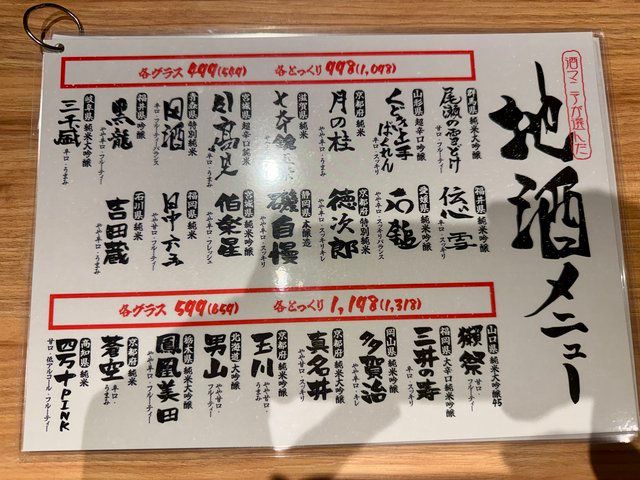 酒マニアが選んだ
地酒メニュー
各グラス 499(549) 各とっくり 998(1,098)
群馬県 純米大吟醸
尾瀬の雪どけ
甘口・フルーティー
山形県 超辛口吟醸
くどき上手
ばくれん
辛口・スッキリ
京都府 純米
月の桂
やや辛口・うまみ
滋賀県 純米
宮城県 超辛口純米
青森県 特別純米
田酒
福井県 吟醸
黒龍
岐阜県 純米大吟醸
三千盛
辛口・うまみ
福井県 純米吟醸
伝心 雪
辛口・スッキリ
愛媛県 純米吟醸
石鎚
京都府 特別純米
徳次郎
やや辛口・スッキリキレ
静岡県 本醸造
磯自慢
やや辛口・スッキリ
宮城県 純米吟醸
伯楽星
やや辛口・フレッシュ
日中六五
やや甘口・フルーティー
石川県 純米
吉田蔵
やや辛口・うまみ
各グラス 599(659) 各とっくり 1,198(1,318)
山口県 純米大吟醸45
獺祭
甘口・フルーティー
福岡県 大辛口純米吟醸
三井の寿
辛口・キレ
岡山県 純米吟醸
多賀治
やや辛口・キレ
京都府 純米大吟醸
真名井
やや辛口・うまみ
京都府 純米大吟醸
玉川
やや甘口・うまみ
北海道 大吟醸
男山
やや甘口・フルーティー
栃木県 純米吟醸
鳳凰美田
やや甘口・フルーティー
京都府 純米
蒼空
辛口・うまみ
高知県 純米
四万十PINK
甘口・低アルコール・フルーティー